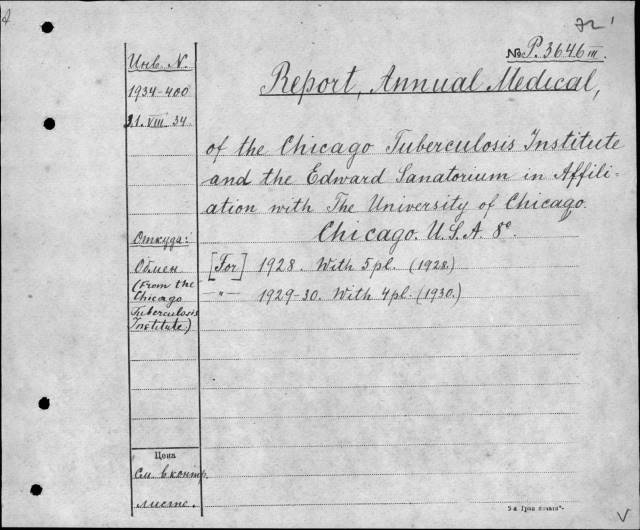 № P. 3646 III.
Инв. N.
1934-400
31. VIII. 34.
Report, Annual Medical,
of the Chicago Tuberculosis Institute
and the Edward Sanatorium in Affili-
ation with The University of Chicago.
Chicago. U.S.A. 8°.
Откуда:
Обмен
(From the
Chicago
Tuberculosis
Institute)
[For] 1928. With 5 pl. (1928.)
—"— 1929-30. With 4 pl. (1930.)
Цена
См. в контр.
листе.
V